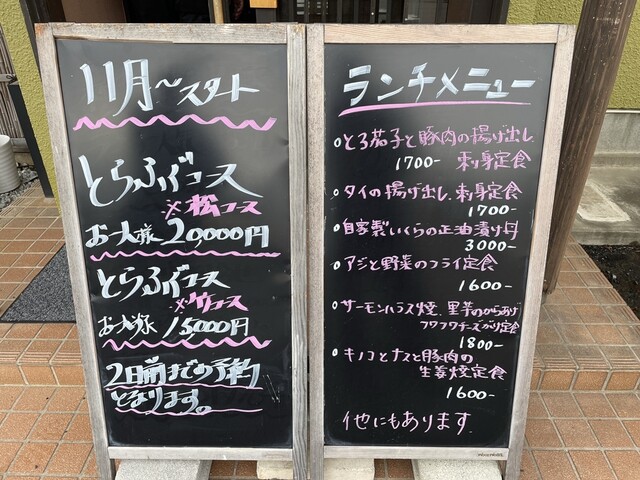 11月〜スタート
とらふぐコース
※松コース
お一人様 20,000円
とらふぐコース
※竹コース
お一人様 15,000円
2日前までの予約
となります。
ランチメニュー
とろ茄子と豚肉の揚げ出し
1700- 刺身定食
タイの揚げ出し、刺身定食
1700-
自家製いくらの正油漬け丼
3000-
アジと野菜のフライ定食
1600-
サーモンハラス焼、里芋のからあげ
フワフワチーズがり定食
1800-
キノコとナスと豚肉の
生姜焼定食
1600-
他にもあります